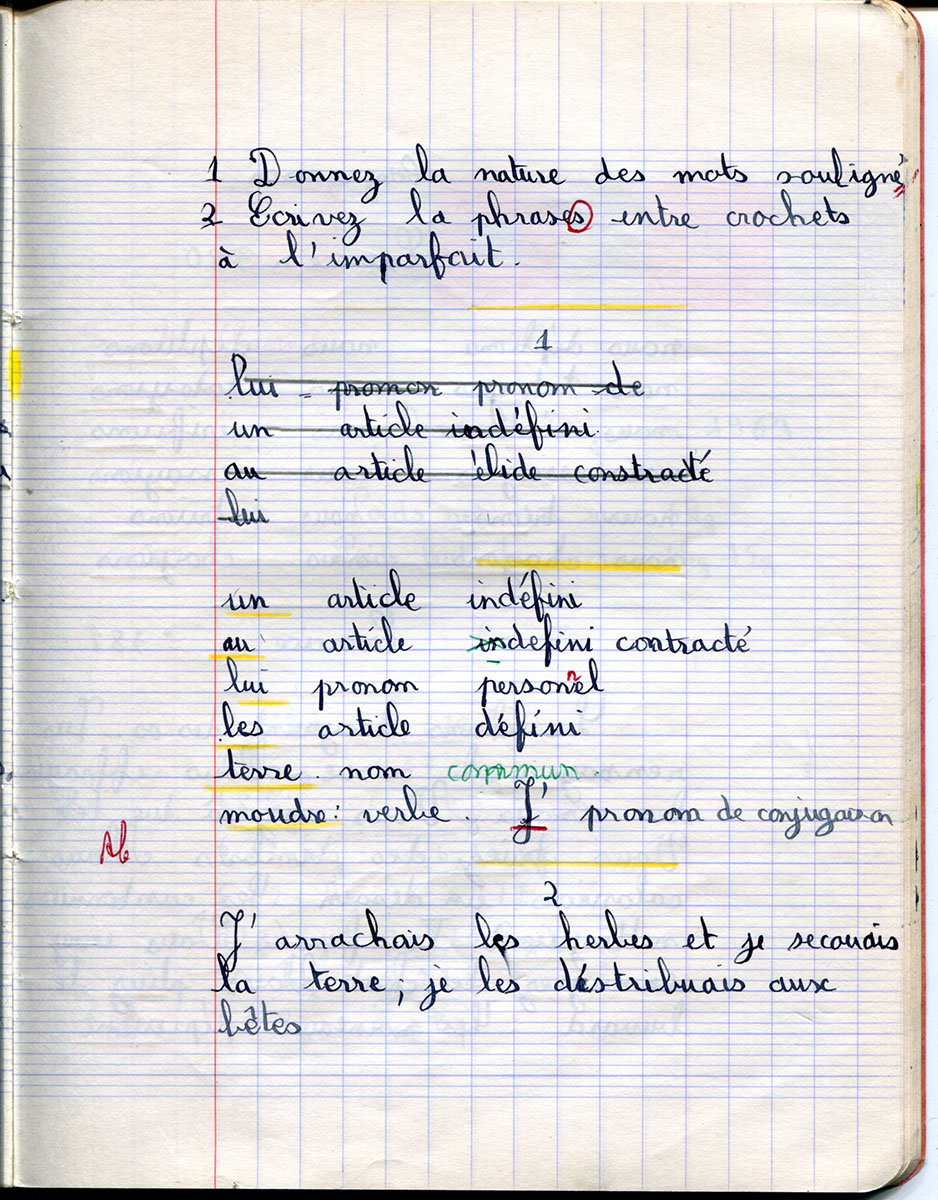 1 Donnez la nature des mots souligné
2 Ecrivez la phrases entre crochets
à l'imparfait.
1
lui = promon pronom de
un article indéfini.
au article élide constracté
lui
un article indéfini
au article indefini contracté
lui pronom personnel
les article défini
terre. nom commun.
moudre: verbe. J' pronom de conjugaison
Ab
2
J'arrachais les herbes et je secouais
la terre; je les distribuais aux
bêtes